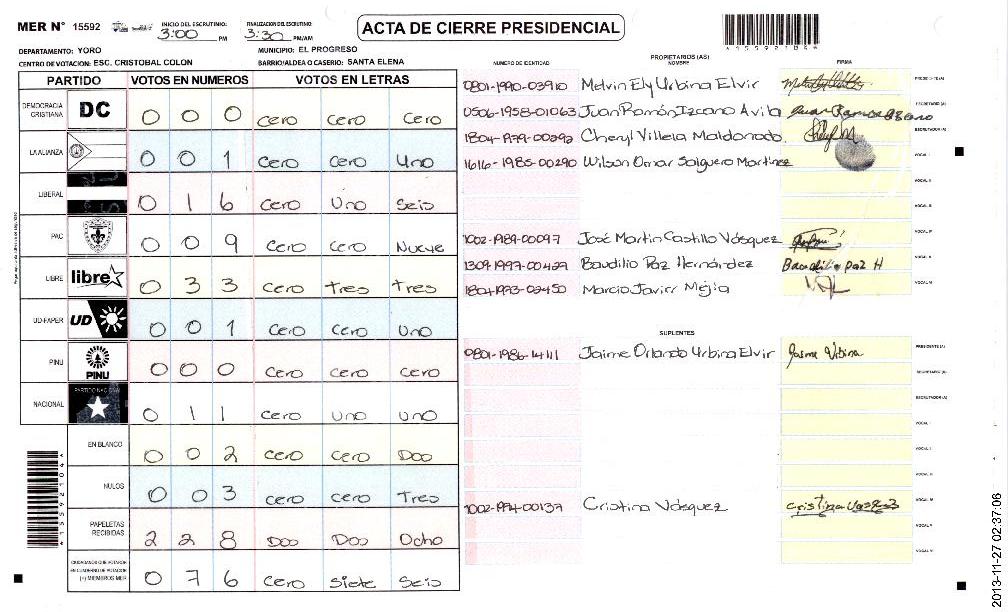 MER N° 15592
INICIO DEL ESCRUTINIO: 3:00 PM
FINALIZACION DEL ESCRUTINIO: 3:30 PM/AM
ACTA DE CIERRE PRESIDENCIAL
DEPARTAMENTO: YORO
MUNICIPIO: EL PROGRESO
CENTRO DE VOTACION: ESC. CRISTOBAL COLON
BARRIO/ALDEA O CASERIO: SANTA ELENA
PARTIDO VOTOS EN NUMEROS VOTOS EN LETRAS
DEMOCRACIA CRISTIANA DC 0 0 0 Cero Cero Cero
LA ALIANZA 0 0 1 Cero Cero Uno
LIBERAL 0 1 6 Cero Uno Seis
PAC 0 0 9 Cero Cero Nueve
LIBRE libre 0 3 3 Cero Tres Tres
UD-FAPER UD 0 0 1 Cero Cero Uno
PINU PINU 0 0 0 Cero Cero Cero
NACIONAL PARTIDO NACIONAL 0 1 1 Cero Uno Uno
EN BLANCO 0 0 2 Cero Cero Dos
NULOS 0 0 3 Cero Cero Tres
PAPELETAS RECIBIDAS 2 2 8 Dos Dos Ocho
CIUDADANOS QUE VOTARON EN CUADERNO DE VOTACION (+) MIEMBROS MER 0 7 6 Cero Siete Seis
PROPIETARIOS (AS)
NUMERO DE IDENTIDAD NOMBRE FIRMA
0801-1990-03910 Melvin Ely Urbina Elvir PRESIDENTE (A)
0506-1958-01063 Juan Ramón Izcano Avila SECRETARIO (A)
1804-1979-00292 Cheryl Villela Maldonado ESCRUTADOR (A)
1616-1985-00290 Wilson Omar Salguero Martinez VOCAL I
VOCAL II
VOCAL III
1002-1989-00097 José Martin Castillo Vásquez VOCAL IV
1309-1997-00427 Baudilio Paz Hernández Baudilio paz H VOCAL V
1804-1973-03450 Marcio Javier Mejia VOCAL VI
SUPLENTES
0801-1986-14111 Jaime Orlando Urbina Elvir Jaime Urbina PRESIDENTE (A)
SECRETARIO (A)
ESCRUTADOR (A)
VOCAL I
VOCAL II
VOCAL III
1002-1974-00137 Cristina Vásquez Cristina Vasquez VOCAL IV
VOCAL V
VOCAL VI
2013-11-27 02:37:06